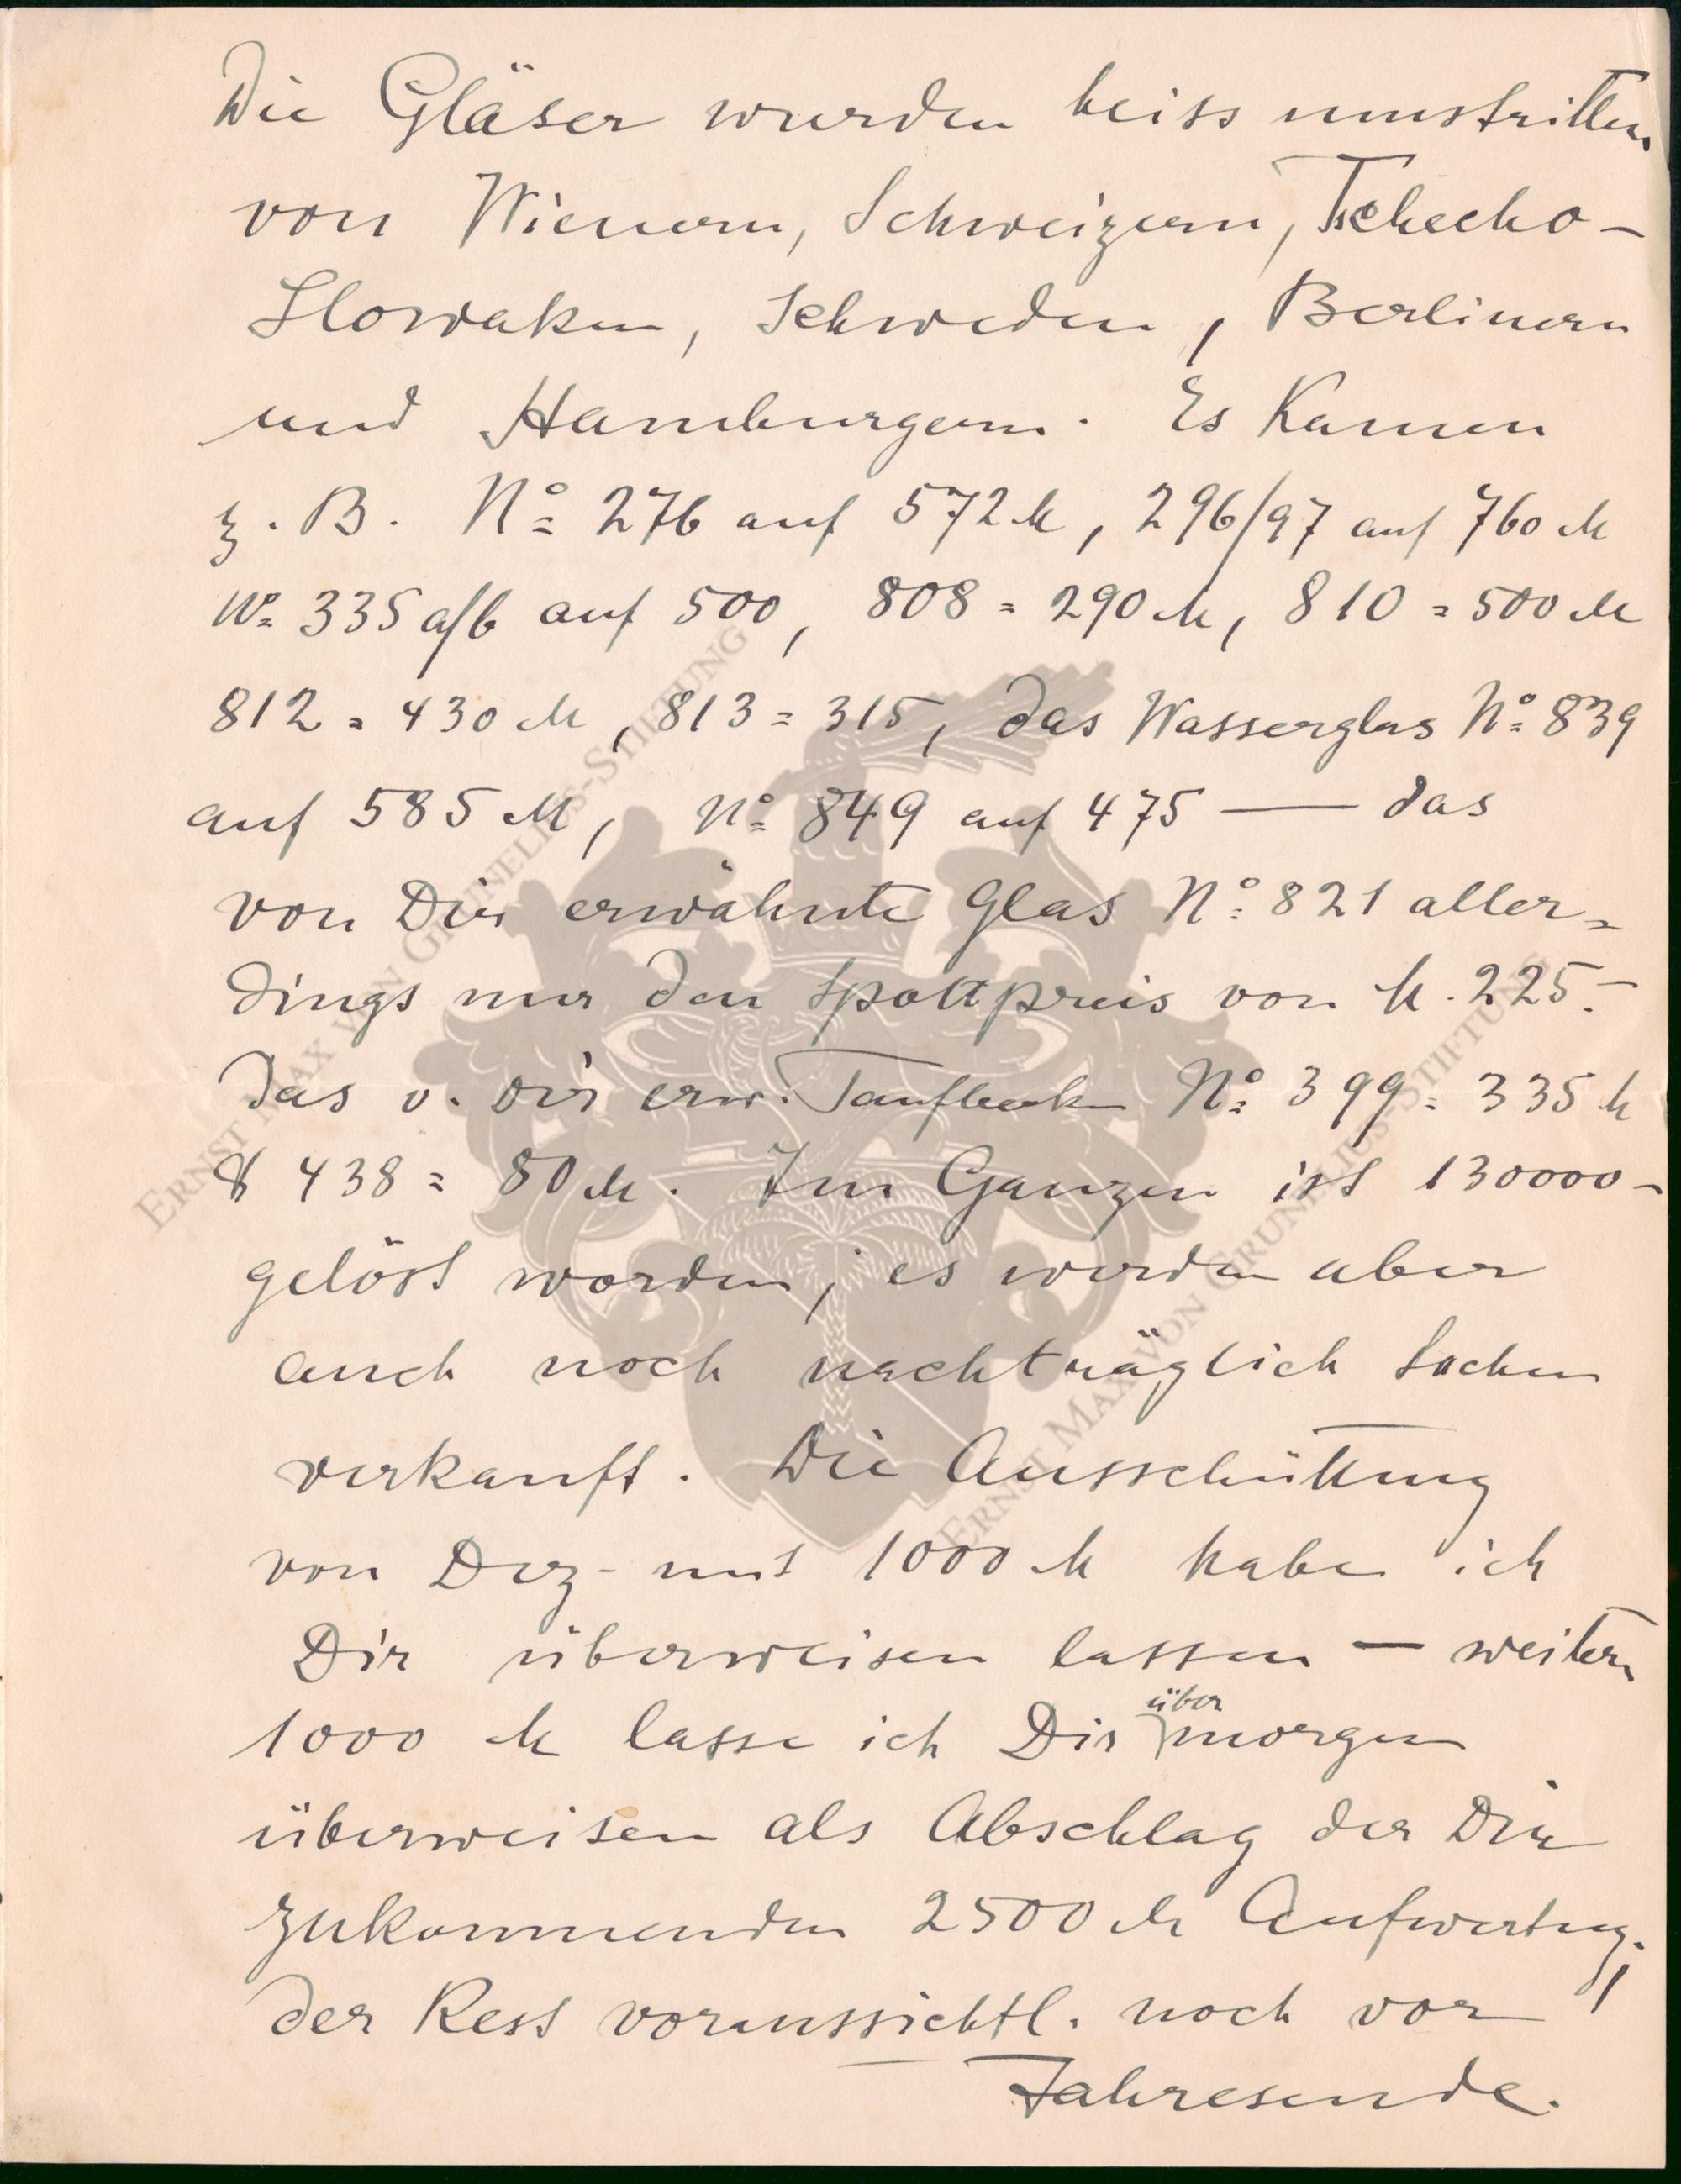 Die Gläser wurden heiss umstritten
von Wienern, Schweizern, Tschecho-
Slowaken, Schweden, Berlinern
und Hamburgern. Es Kamen
z. B. No 276 auf 572 M, 296/97 auf 760 M
No 335 a/b auf 500, 808 = 290 M, 810 = 500 M
812 = 430 M, 813 = 315, das Wasserglas No 839
auf 585 M, No 849 auf 475 — das
von Dir erwähnte Glas No 821 aller=
dings nur den Spottpreis von M. 225.-
Das v. Dir erw. Taufbecken No 399 = 335 M
& 438 = 80 M. Im Ganzen ist 130000-
gelöst worden, es werden aber
auch noch nachträglich Sachen
verkauft. Die Ausschüttung
von Dez- mit 1000 M habe ich
Dir überweisen lassen — weitere
1000 M lasse ich Dir übermorgen
überweisen als Abschlag der Dir
zukommenden 2500 M Aufwertung;
der Rest voraussichtl. noch vor
Jahresende.
ERNST MAX VON GRUNELIUS-STIFTUNG
ERNST MAX VON GRUNELIUS-STIFTUNG